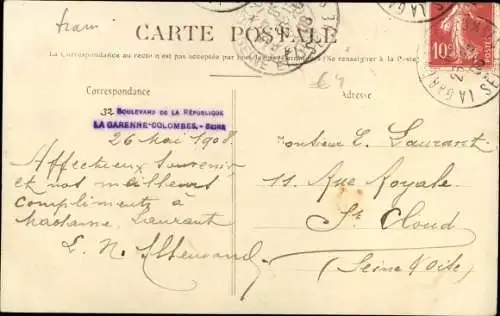 tram
CARTE POSTALE
La Correspondance au recto n'est pas acceptée par tous les (Se renseigner à la Poste)
64
Correspondance
Adresse
32 BOULEVARD DE LA RÉPUBLIQUE
LA GARENNE-COLOMBES. - SEINE
26 Mai 1908.
Affectueux souvenir
et nos meilleurs
compliments à
Madame Laurant
L. N.
Monsieur L. Laurant
11 Rue Royale
St Cloud
(Seine & Oise)
10c
POSTES
LA GARENNE